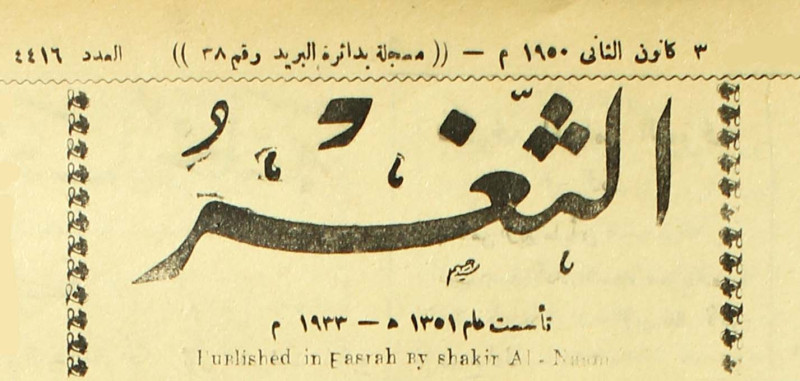 ٣ كانون الثاني ١٩٥٠ م — (( مسجلة بدائرة البريد رقم ٣٨ )) العدد ٤٤١٦
الثَّغْرُ
تأسست عام ١٣٥١ ه — ١٩٣٣ م
Published in Basrah By shakir Al -